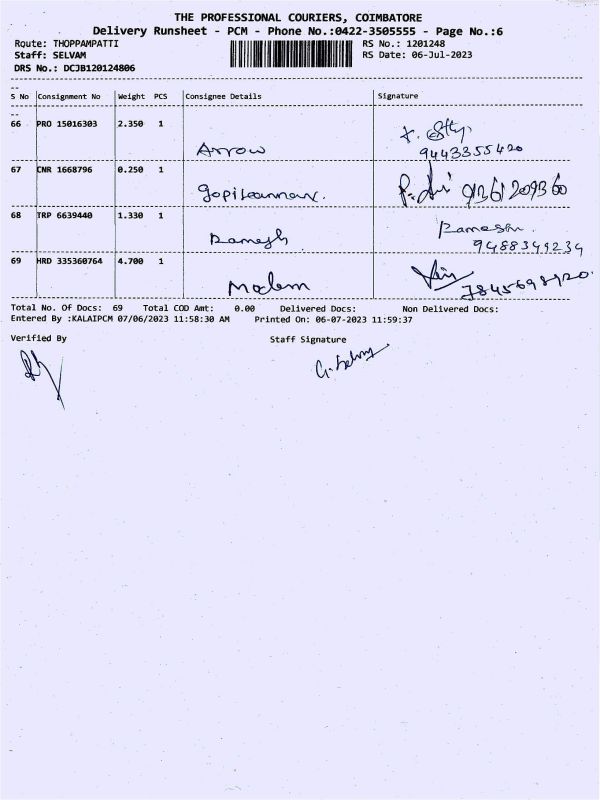 THE PROFESSIONAL COURIERS, COIMBATORE
Delivery Runsheet - PCM - Phone No.:0422-3505555 - Page No.:6
Route: THOPPAMPATTI RS No.: 1201248
Staff: SELVAM RS Date: 06-Jul-2023
DRS No.: DCJB120124806
S No Consignment No Weight PCS Consignee Details Signature
66 PRO 15016303 2.350 1
Arrow 9443355420
67 CNR 1668796 0.250 1
Gopikannan.
68 TRP 6639440 1.330 1 Ramesh
Ramesh 9488349234
69 HRD 335360764 4.700 1
Modern 7845698920.
Total No. Of Docs: 69 Total COD Amt: 0.00 Delivered Docs: Non Delivered Docs:
Entered By :KALAIPCM 07/06/2023 11:58:30 AM Printed On: 06-07-2023 11:59:37
Verified By Staff Signature
G. Selvam